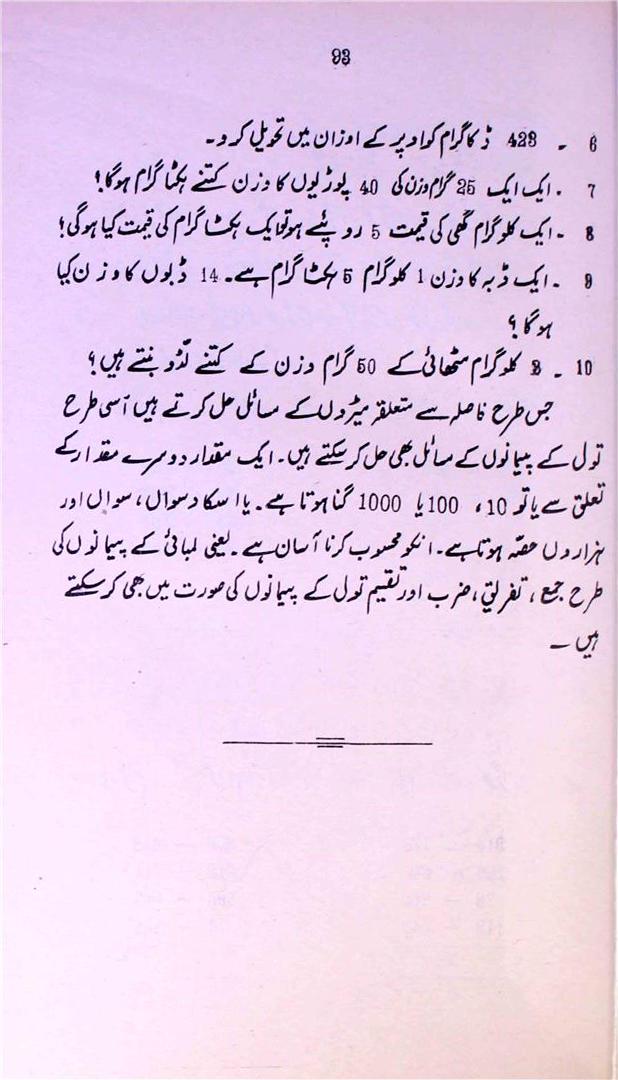 93
6 ۔ 423 ڈکاگرام کو اوپر کے اوزان میں تحویل کرو۔
7 ۔ ایک ایک 25 گرام وزن کی 40 پلوڑیوں کا وزن کتنے ہکٹا گرام ہوگا؟
8 ۔ ایک کلوگرام گھی کی قیمت 5 روپئے ہو تو ایک ہکٹاگرام کی قیمت کیا ہوگی؟
9 ۔ ایک ڈبہ کا وزن 1 کلوگرام 5 ہکٹاگرام ہے۔ 14 ڈبوں کا وزن کیا
ہوگا؟
10 ۔ کلوگرام مٹھائی کے 50 گرام وزن کے کتنے لڈو بنتے ہیں؟
جس طرح فاصلہ سے متعلقہ میٹروں کے مسائل حل کرتے ہیں اسی طرح
تول کے پیمانوں کے مسائل بھی حل کرسکتے ہیں۔ ایک مقدار دوسرے مقدار کے
تعلق سے یا تو 10، 100 یا 1000 گنا ہوتا ہے۔ یا اسکا دسواں، سواں اور
ہزارواں حصّہ ہوتا ہے۔ انکو محسوب کرنا آسان ہے۔ یعنی لمبائی کے پیمانوں کی
طرح جمع، تفریق، ضرب اور تقسیم تول کے پیمانوں کی صورت میں بھی کرسکتے
ہیں ۔